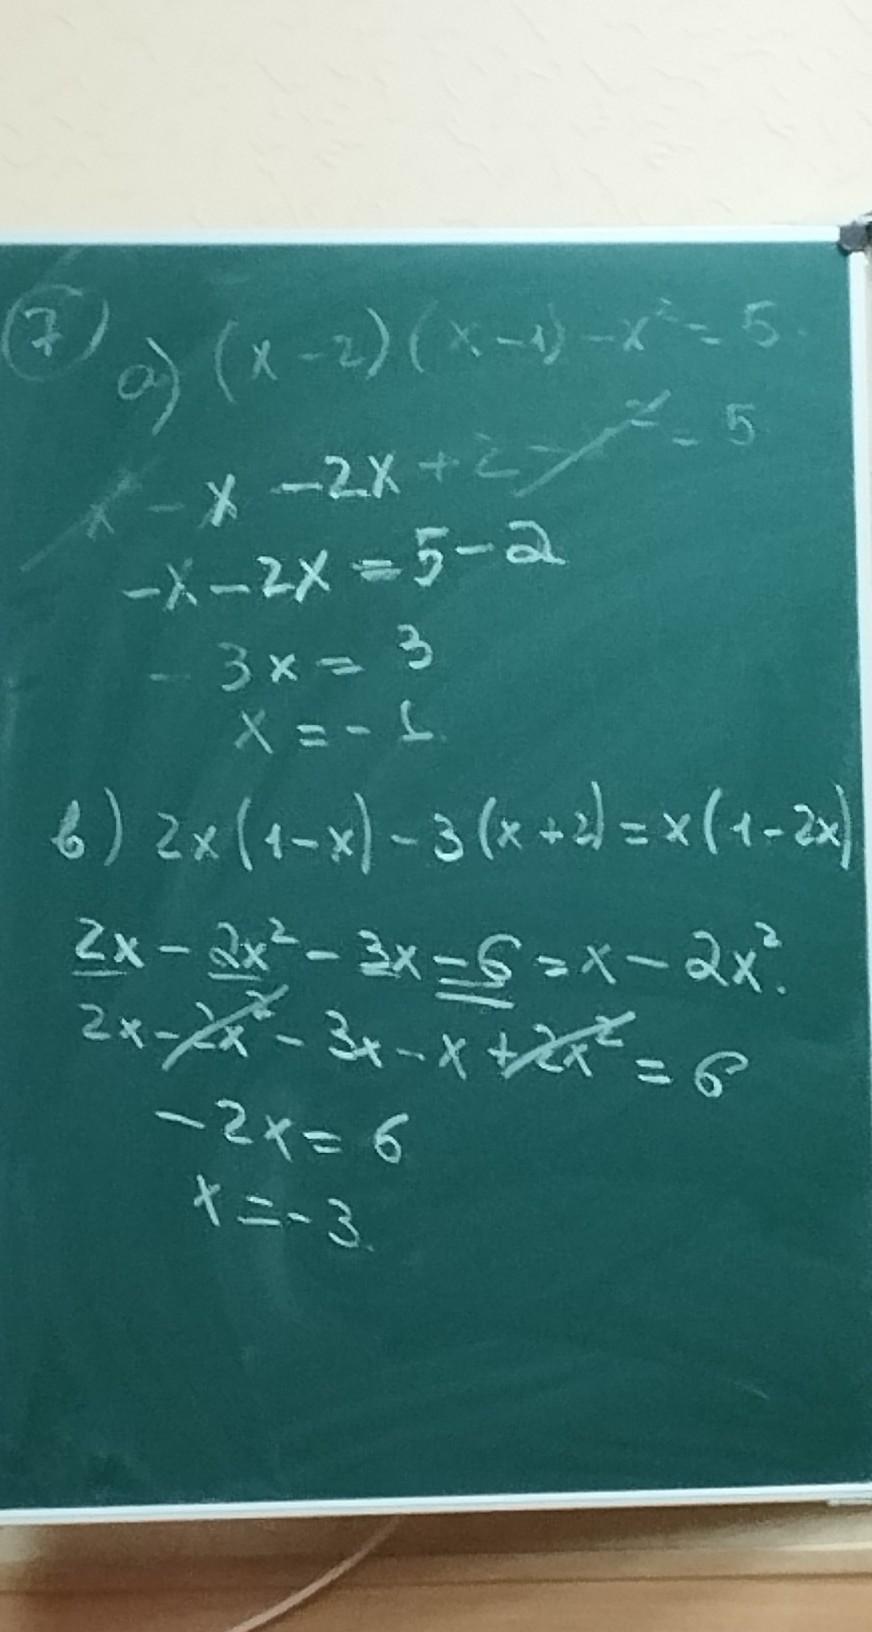 7
а) (x - 2)(x - 1) - x² = 5.
x² - x - 2x + 2 - x² = 5
-x - 2x = 5 - 2
- 3x = 3
x = - 1.
в) 2x(1 - x) - 3(x + 2) = x(1 - 2x)
2x - 2x² - 3x - 6 = x - 2x².
2x - 2x² - 3x - x + 2x² = 6
- 2x = 6
x = - 3.